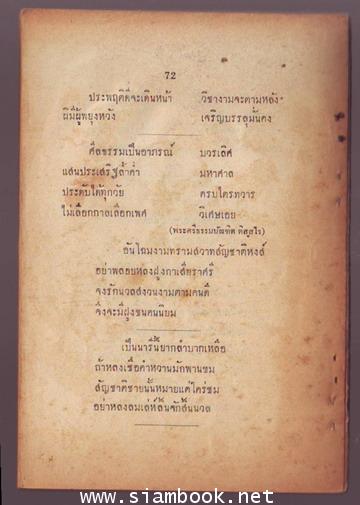 72
ประพฤติดีจะเดินหน้า วิชางามจะตามหลัง
มีผู้พยุงหวัง เจริญบรรลุมั่นคง
ศีลธรรมเป็นอาภรณ์ บวรเลิศ
แสนประเสริฐล้ำค่า มหาศาล
ประดับได้ทุกวัย ครบไตรทวาร
ไม่เลือกกาลเลือกเพศ วิเศษเอย
(พระศรีธรรมบัณฑิต ติสฺสโร)
อันโฉมงามทรามสวาทสัญชาติหงส์
อย่าพลอยหลงฝูงกาเสียราศี
จงรักนวลสงวนงามตามคนดี
จึงจะมีฝูงชนคนนิยม
เป็นนารีนี้ยากลำบากเหลือ
ถ้าหลงเชื่อคำหวานมักพานขม
สัญชาติชายนั้นหมายแต่ใคร่ชม
อย่าหลงลมเล่ห์ลิ้นจักสิ้นนวล
www.siambook.net